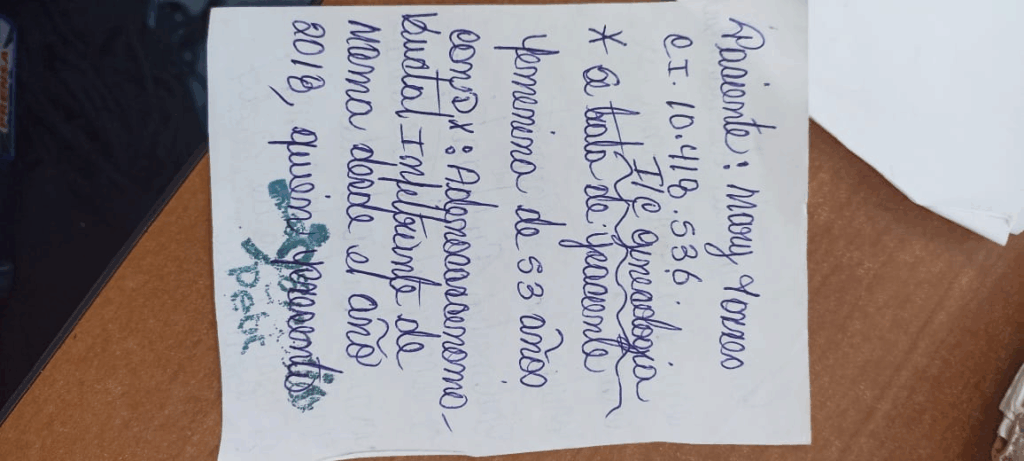 Paciente: Mary Torres
C.I. 10.418.536
I/C ginecología
* a bata de paciente
Femenina de 53 años
con Dx: Adenocarcinoma
Ductal Infiltrante de
Mama desde el año
2018, quien